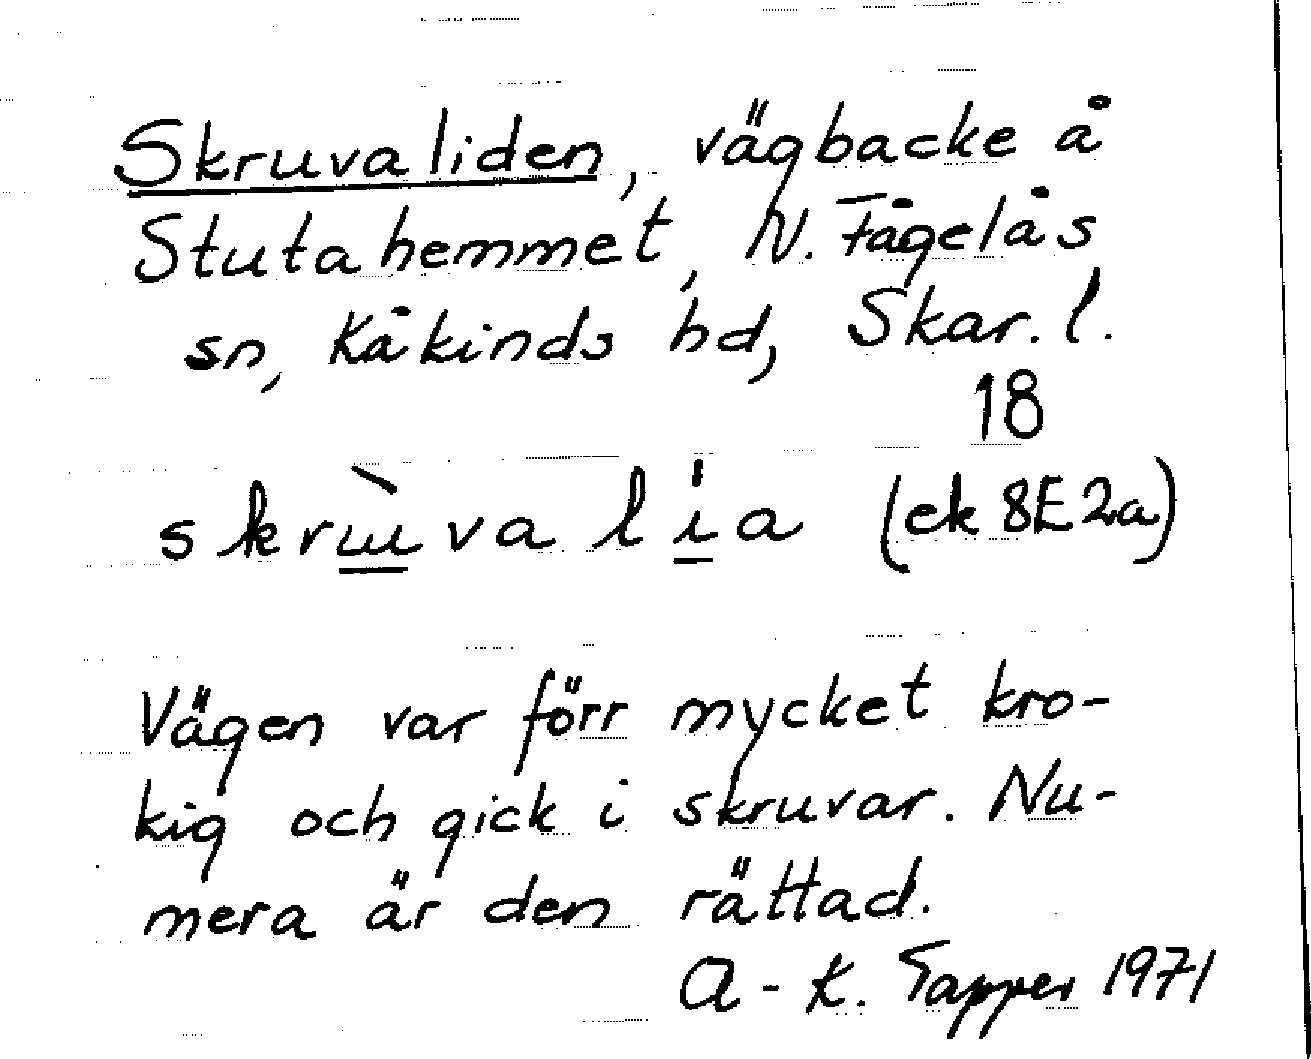 Skruvaliden, vägbacke å
Stutahemmet, N. Fågelås
sn, Kåkinds hd, Skar. l.
18
skrɯ̀va lı̍a (ek 8E2a)
Vägen var förr mycket kro-
kig och gick i skruvar. Nu-
mera är den rättad.
A-K. Tapper 1971